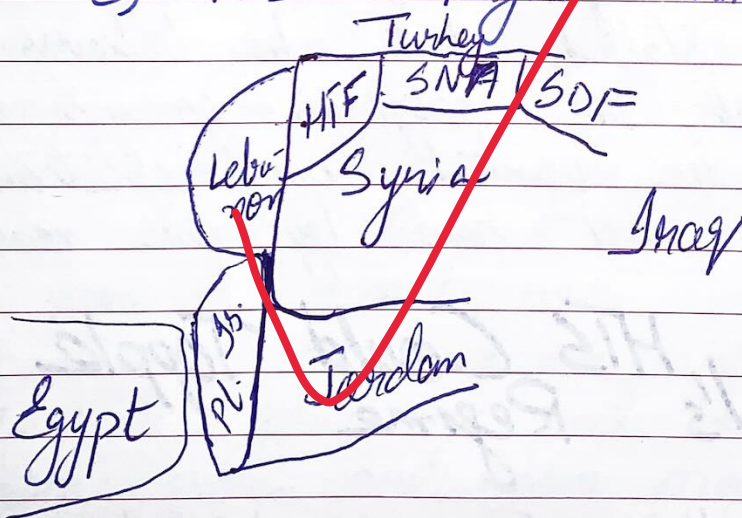 Turkey
HTF
SNA
SDF
Leba-
non
Syria
Iraq
Is.
Jordan
Pl.
Egypt